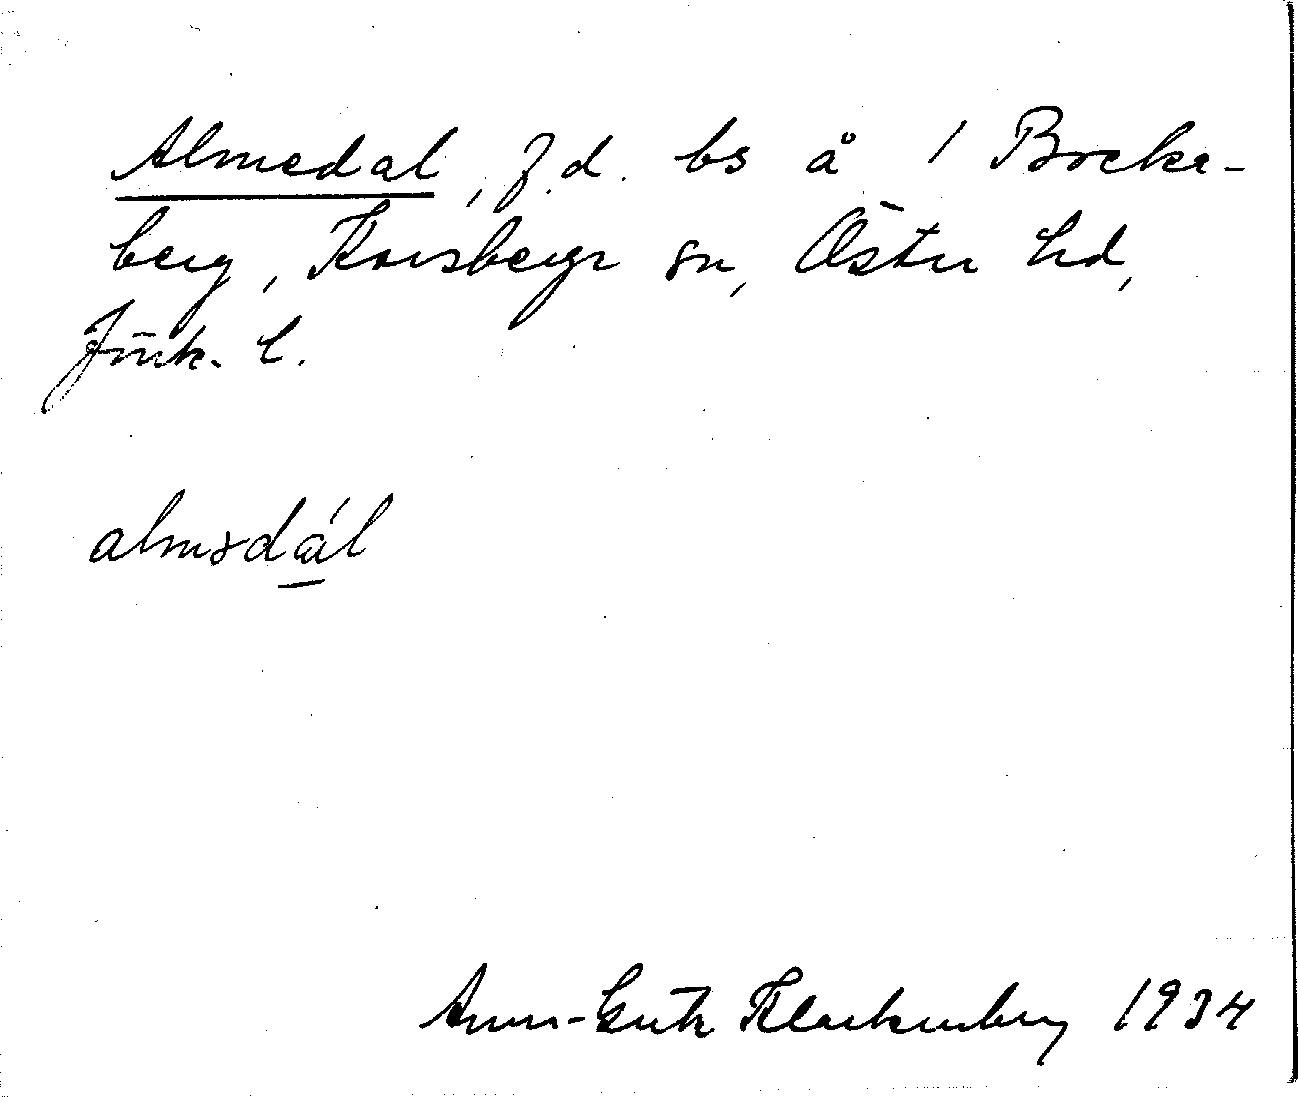 Almedal, f.d. bs å / Bocka-
berg, Korsberga sn, Östra hd,
Jönk. l.
almədál
Ann- Klackenberg 1934